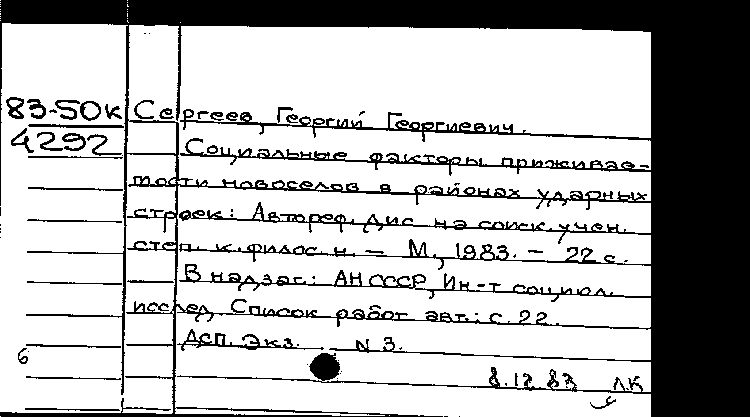 83-50к Сергеев, Георгий Георгиевич.
4292 Социальные факторы приживае-
мости новоселов в районах ударных
строек: Автореф. дис на соиск. учен.
степ. к. филос. н. — М., 1983. — 22 с.
В надзаг.: АН СССР, Ин-т социол.
исслед. Список работ авт.: с. 22.
ДСП. Экз. N 3.
6
8.12 83 ЛК